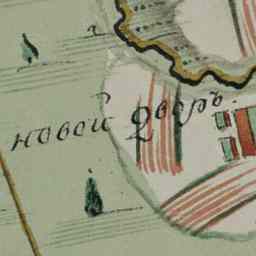 новой Дворъ.